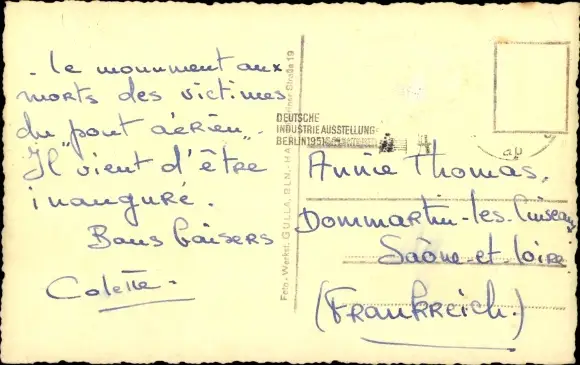 . Le monument aux
morts des victimes
du "pont aérien".
Il vient d'être
inauguré.
Bons baisers
Colette.
Foto-Werkst. GULLA, BLN.-MA
Straße 19
DEUTSCHE
INDUSTRIEAUSSTELLUNG
BERLIN 1951
Annie Thomas.
Dommartin-les-Cuiseaux
Saône-et-Loire
(Frankreich.)